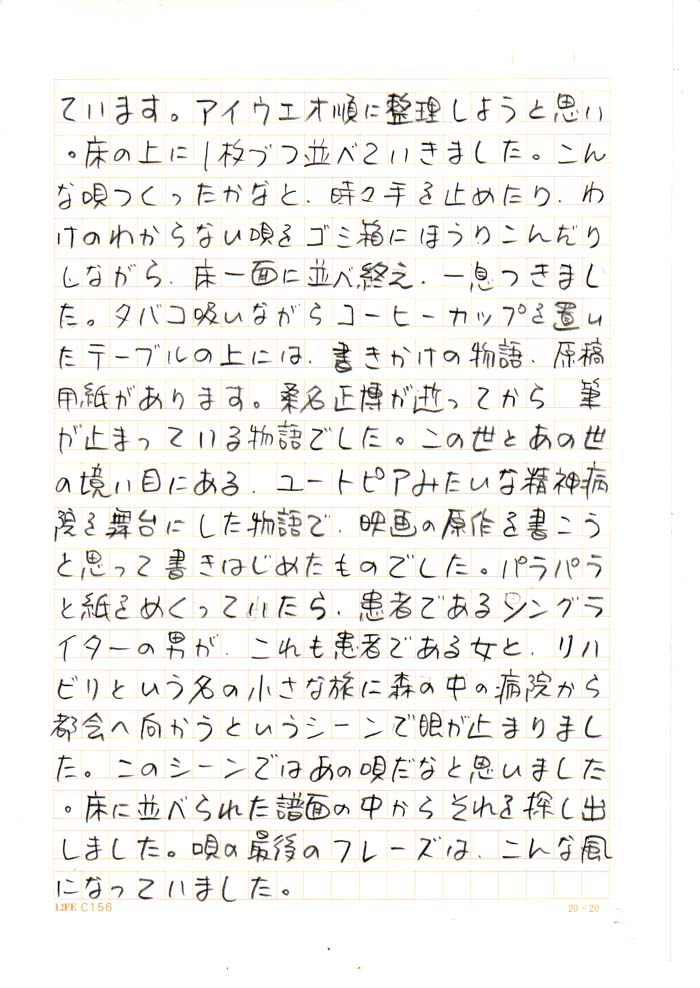 ています。アイウエオ順に整理しようと思い
。床の上に1枚づつ並べていきました。こん
な唄つくったかなと、時々手を止めたり、わ
けのわからない唄をゴミ箱にほうりこんだり
しながら、床一面に並べ終え、一息つきまし
た。タバコ吸いながらコーヒーカップを置い
たテーブルの上には、書きかけの物語、原稿
用紙があります。桑名正博が逝ってから、筆
が止まっている物語でした。この世とあの世
の境い目にある、ユートピアみたいな精神病
院を舞台にした物語で、映画の原作を書こう
と思って書きはじめたものでした。パラパラ
と紙をめくっていたら、患者であるシングラ
イターの男が、これも患者である女と、リハ
ビリという名の小さな旅に森の中の病院から
都会へ向かうというシーンで眼が止まりまし
た。このシーンではあの唄だなと思いました
。床に並べられた譜面の中からそれを探し出
しました。唄の最後のフレーズは、こんな風
になっていました。
LIFE C156
20×20